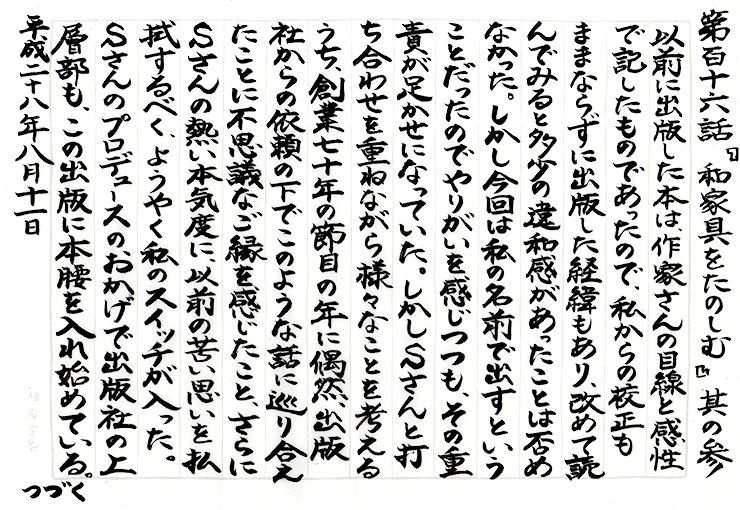 第百十六話『和家具をたのしむ』其の参
以前に出版した本は、作家さんの目線と感性
で記したものであったので、私からの校正も
ままならずに出版した経緯もあり、改めて読
んでみると多少の違和感があったことは否め
なかった。しかし今回は私の名前で出すという
ことだったのでやりがいを感じつつも、その重
責が足かせになっていた。しかしSさんと打
ち合わせを重ねながら様々なことを考える
うち、創業七十年の節目の年に偶然、出版
社からの依頼の下でこのような話に巡り合え
たことに不思議なご縁を感じたこと、さらに
Sさんの熱い本気度に、以前の苦い思いを払
拭するべく、ようやく私のスイッチが入った。
Sさんのプロデュースのおかげで出版社の上
層部も、この出版に本腰を入れ始めている。
つづく
平成二十八年八月十一日